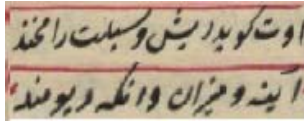 اوت کوید ریش و سبلت را مخند
آینه و میزان و انکه ریو مند